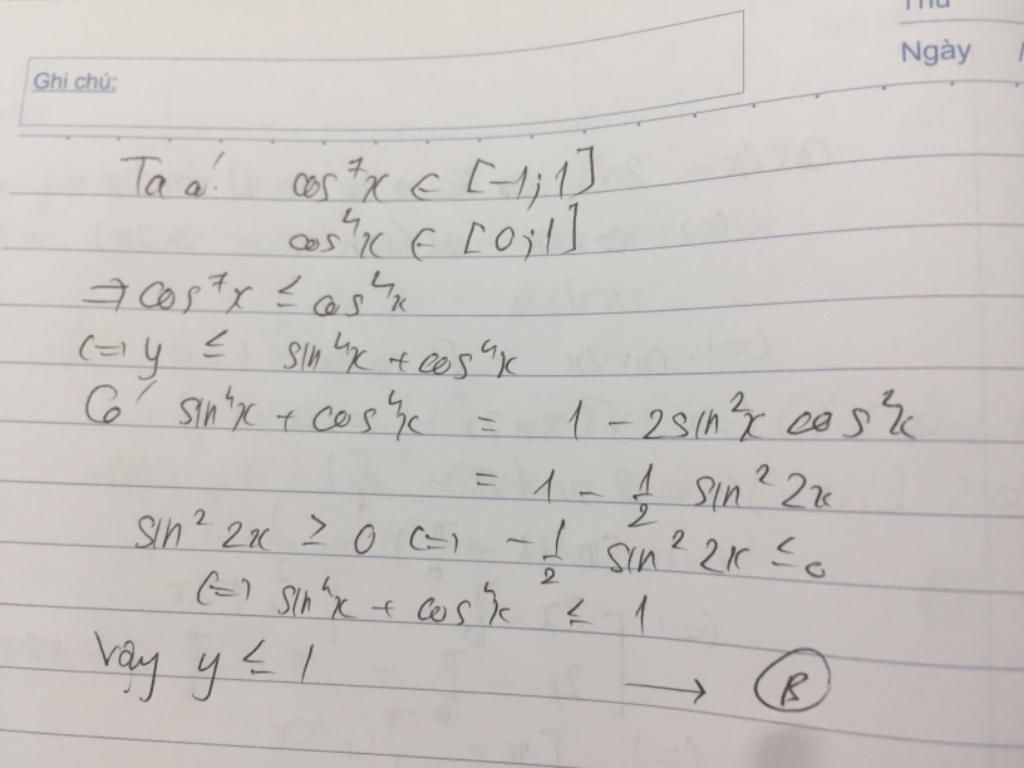 Thứ
Ngày
Ghi chú:
Ta có: cos⁷x ∈ [-1; 1]
cos⁴x ∈ [0; 1]
⇒ cos⁷x ≤ cos⁴x
(=) y ≤ sin⁴x + cos⁴x
Có sin⁴x + cos⁴x = 1 - 2sin²x cos²x
= 1 - 1/2 sin² 2x
sin² 2x ≥ 0 (=) - 1/2 sin² 2x ≤ 0
(=) sin⁴x + cos⁴x ≤ 1
Vậy y ≤ 1 → B